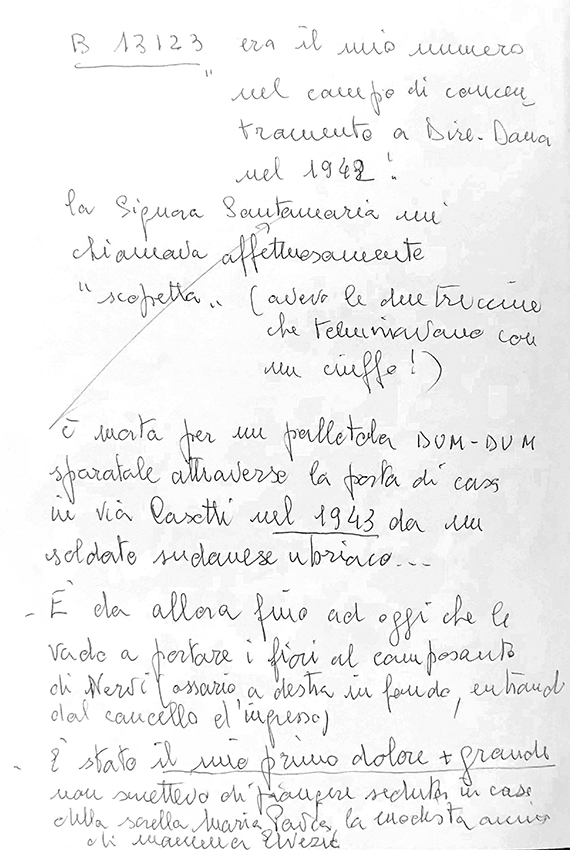 B 13123 era il mio numero
"
nel campo di concen
tramento a Dire-Daua
nel 1942!
la Signora Santamaria mi
chiamava affettuosamente
"scopetta" (avevo le due treccine
che terminavano con
un ciuffo!)
è morta per un pallottola DUM-DUM
sparatale attraverso la porta di casa
in via Casetti nel 1943 da un
soldato sudanese ubriaco...
- È da allora fino ad oggi che le
vado a portare i fiori al camposanto
di Nervi (ossario a destra in fondo, entrand
dal cancello d'ingresso)
- È stato il mio primo dolore + grande
non smettevo di piangere seduta in casa
della sorella Maria la modista amica
di mamma